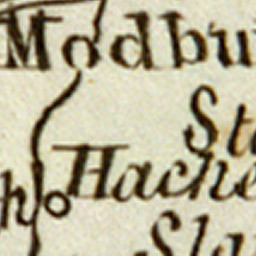 Modbu
St
Hache
h
Sla